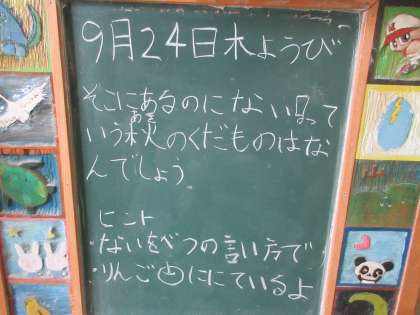 9月24日木ようび
そこにあるのにない日って
いう秋のくだものはな
あき
んでしょう
ヒント
・ないをべつの言い方で
・りんごににているよ